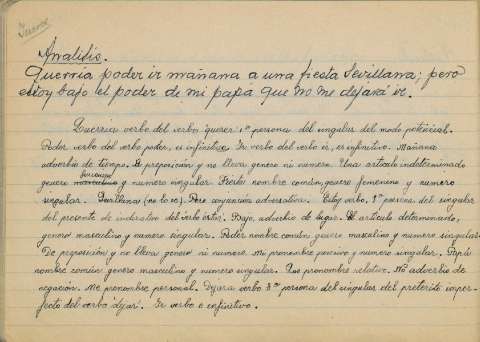 Analisis.
Querria poder ir mañana a una fiesta Sevillana; pero
estoy bajo el poder de mi papa que no me dejará ir.
Querria verbo del verbo querer 1ª persona del singular del modo potencial.
Poder verbo del verbo poder, es infinitivo. Ir verbo del verbo ir, es infinitivo. Mañana
adverbio de tiempo. A preposición y no lleva genero ni numero. Una artículo indeterminado
femenino
genero masculino y numero singular. Fiesta nombre común, genero femenino y numero
singular. Sevillana (no lo se). Pero conjuncion adversativa. Estoy verbo, 1ª persona del singular
del presente de indicativo del verbo estar. Bajo, adverbio de lugar. El articulo determinado,
genero masculino y numero singular. Poder nombre común genero masculino y numero singular
De preposición y no lleva genero ni numero. Mi pronombre y numero singular. Papá
nombre común genero masculino y numero singular. Que pronombre relativo. No adverbio de
negación. Me pronombre personal. Dejara verbo 3ª persona del singular del preterito imper-
fecto del verbo dejar. Ir verbo e infinitivo.